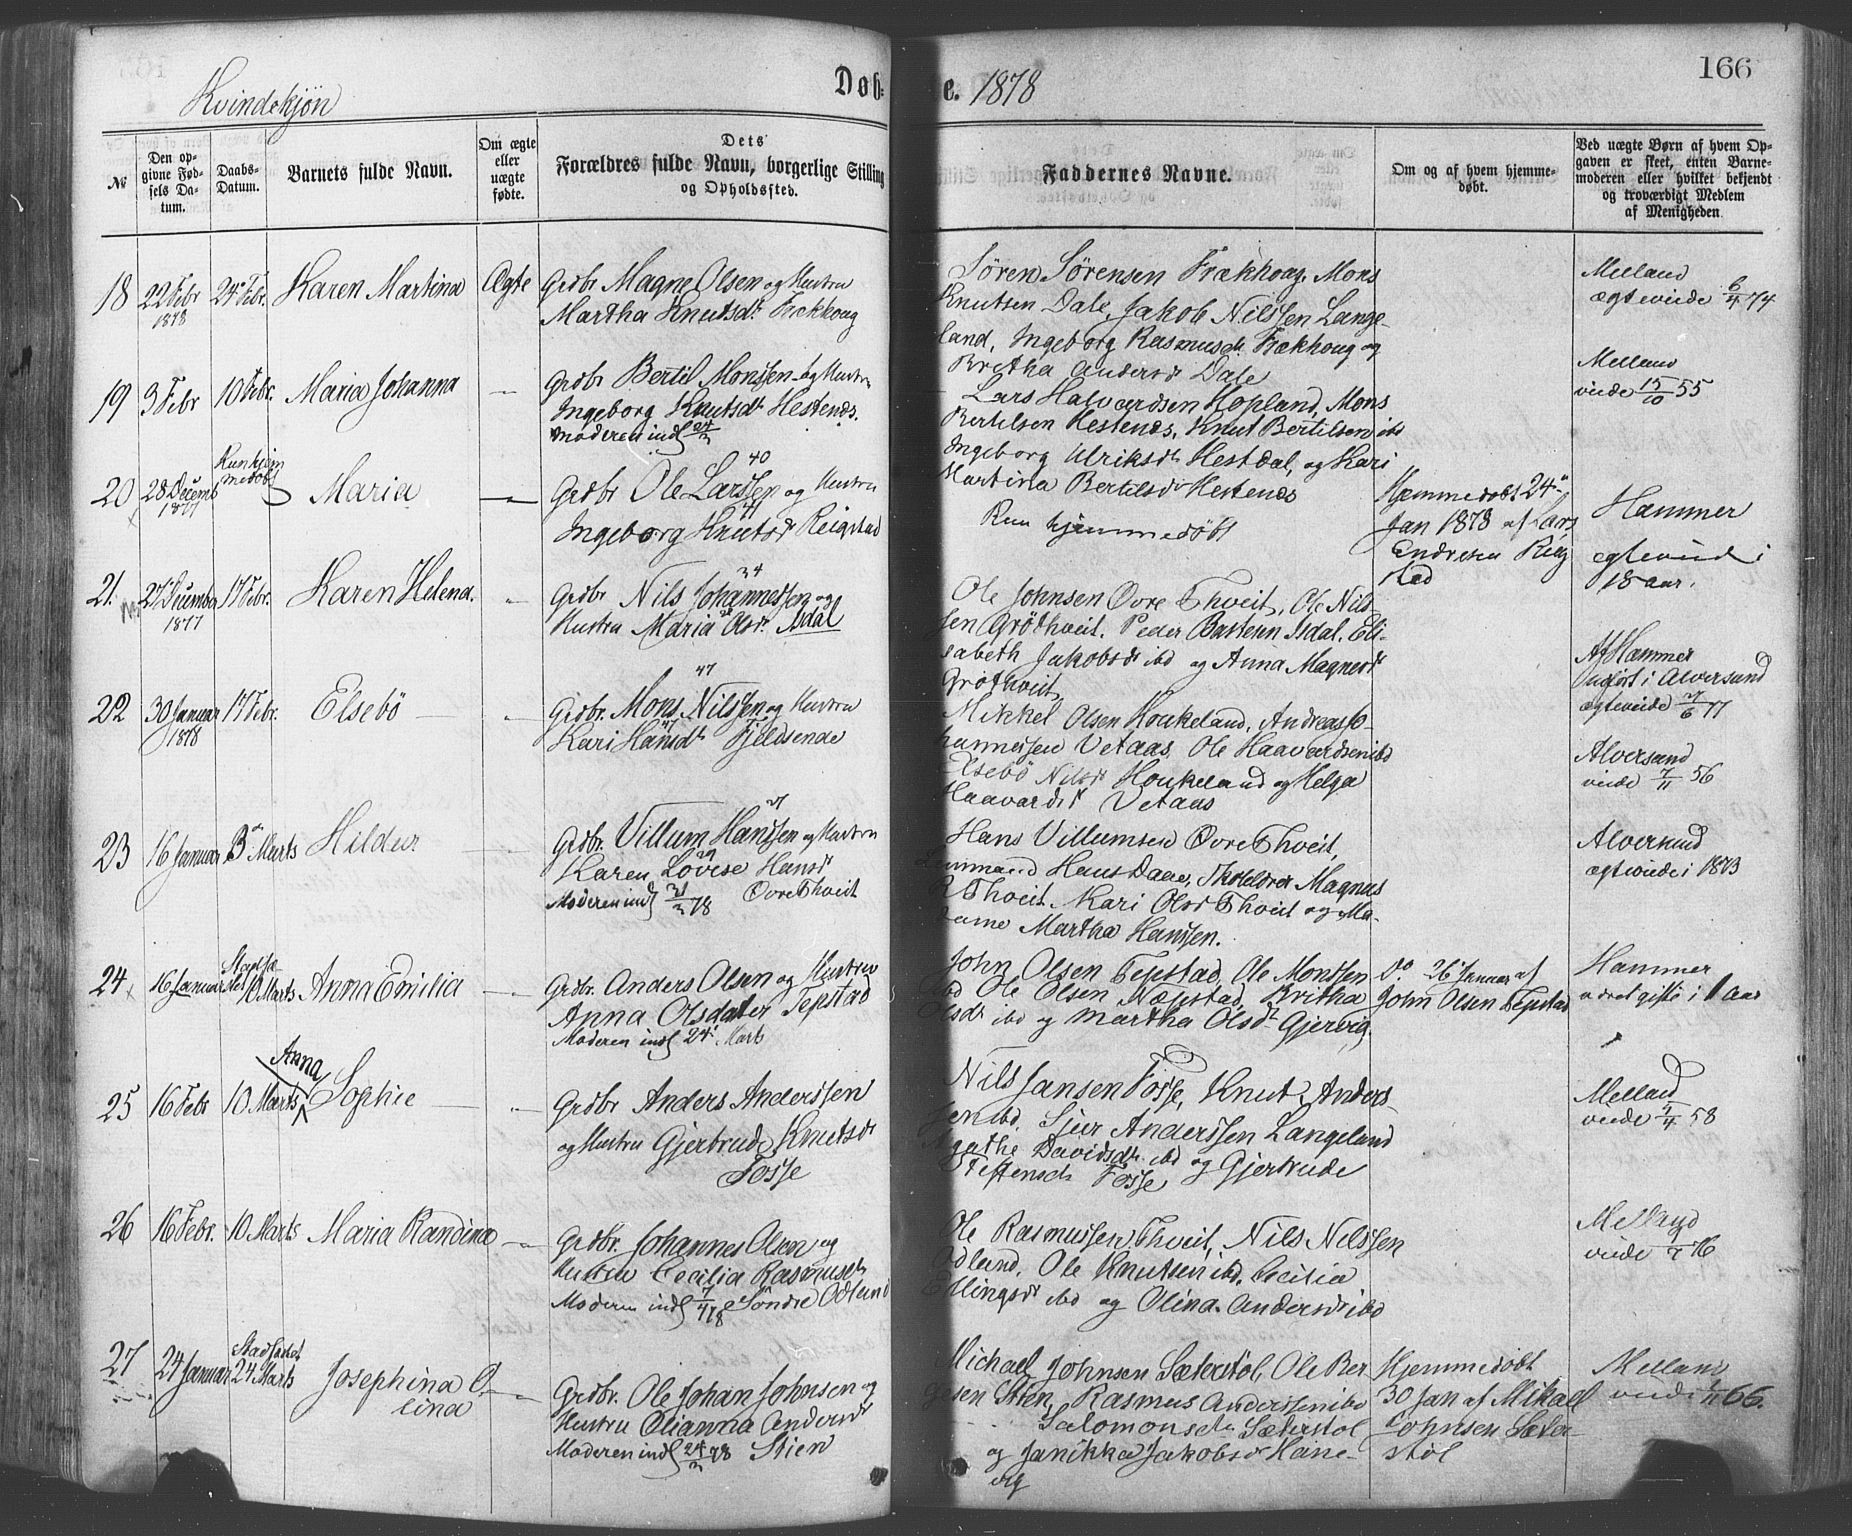 166
Kvindekjön
Døb-
e. 1878
№
Den op-
givne Fød-
sels Da-
tum.
Daabs-
Datum.
Barnets fulde Navn.
Om ægte
eller
uægte
fødte.
Dets
Forældres fulde Navn, borgerlige Stilling
og Opholdssted.
Faddernes Navne.
Om og af hvem hjemme-
døbt.
Ved uægte Børn af hvem Op-
gaven er skeet, enten Barne-
moderen eller hvilket bekjendt
og troværdigt Medlem
af Menigheden.
18
22 Febr
1878
24 Febr.
Karen Martina
Ægte
Grdbr Magne Olsen og Hustru
Martha Knutsdr Frækhoug
Sören Sörensen Frækhoug, Mons
Knutsen Dale, Jakob Nilssen Lange-
land, Ingeborg Rasmusdr. Frækhoug og
Britha Andersdr Dale
Melland
ægteviede 6/4 74
19
3 Febr
10 Febr.
Maria Johanna
Grdbr Bertil Monssen og Hustru
Ingeborg Knutsdr Hestenes.
Moderen indl 24/3
Lars Halvardsen Hopland, Mons
Bertilsen Hestenes, Knut Bertilsen ibd
Ingeborg Ulriksdr Hestdal, og Kari
Martina Bertilsdr Hestenes
Melland
viede 15/10 55
20
28 Decemb
1877
Kun hjem
medöbt
Maria
40
Grdbr Ole Larssen og Hustru
41
Ingeborg Knutsdr Reigstad
Kun hjemmedöbt
Hjemmedöbt 24
Jan 1878 af Lars
Endresen Reig
stad
Hammer
ægteviede i
18 aar.
21.
27 December
1877
17 Febr.
Karen Helena.
34
Grdbr Nils Johannessen og
Hustru Maria Olsdr. Isdal
Ole Johnsen Øvre Thveit, Ole Nils-
sen Gröthveit, Peder Bastesen Isdal, Eli-
sabeth Jakobsdr ibd og Anna Magnesdr
Gröthveit
Af Hammer
udfört i Alversund
ægteviede 7/6 77
22
30 Januar
1878
17 Febr.
Elsebö
47
Grdbr. Mons Nilssen og Hustru
Kari Hansdr Fjeldsende
Mikkel Olsen Houkeland, Andreas Jo-
hannessen Vetaas, Ole Haavardsen ibd
Elsebö Nilsdr Houkeland og Helga
Haavardsdr Vetaas
Alversund
viede 7/11 56
23
16 Januar
3 Marts
Hildur
27
Grdbr. Villum Hanssen og Hustru
29
Karen Lovise Hansdr
Moderen indl 31/3 78 Øvre Thveit
Hans Villumsen Øvre Thveit,
Lensmand Hans Daae, Skolelærer Magnus
R Thveit, Kari Olsdr Thveit og Ma-
dame Martha Hanssen.
Alversund
ægteviede i 1873
24
16 Januar
Stadfæ-
stet 10 Marts
Anna Emilia
Grdbr. Anders Olsen og Hustru
Anna Olsdatter Tepstad
Moderen indl 24 Marts
John Olsen Tepstad, Ole Monssen
ibd Ole Olsen Næpstad, Britha
Olsdr ibd og Martha Olsdr Gjervig.
Do 26 Januar af
John Olsen Tepstad
Hammer
været gifte i 1 aar
25
16 Febr
10 Marts
Anna
Sophie
Grdbr Anders Anderssen
og Hustru Gjertrude Knutsdr
Fosse
Nils Jansen Fosse, Knut Anders-
sen ibd, Sjur Anderssen Langeland
Agathe Davidsdr. ibd og Gjertrude
Steffensdr Fosse
Melland
viede 7/4 58
26
16 Febr.
10 Marts
Maria Randina
Grdbr. Johannes Olsen og
Hustru Cecilia Rasmusdr
Moderen indl 7/4 78 Söndre Odland
Ole Rasmussen Thveit, Nils Nilssen
Odland, Ole Knutsen ibd, Cecilia
Ellingsdr ibd og Olina Andersdr ibd
Melland
viede 76
27
24 Januar
Stadfæstet
24 Marts
Josephina O-
lina
Grdbr. Ole Johan Johnsen og
Hustru Olianna Andersdr
Moderen indl 24/3 78 Stien
Michael Johnsen Sæterstöl, Ole Ber
gesen Stien, Rasmus Anderssen ibd
Salomonsdr Sæterstöl
og Janikka Jakobsdr Hane-
vig
Hjemmedöbt
30 Jan af Mikael
Johnsen Sæter
stöl
Melland
viede 66.